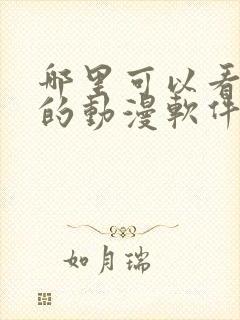 哪里可以看
的動漫軟件
如月瑞